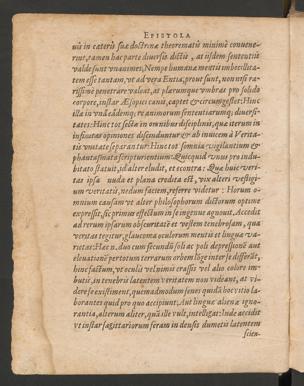 EPISTOLA
uis in cæteris suæ doctrinæ theorematis minimè conuene-
rint, tamen hac parte diuersis dictis, at iisdem sententiis
valde sunt vnanimes, Nempe humanæ mentis imbecillita-
tem esse tantam, vt ad vera Entia, prout sunt, non nisi ra-
rissimè penetrare valeat, at plærumque vmbras pro solido
corpore, instar Æsopici canis, captet & circumgestet: Hinc
illa in vna eademq; re animorum sententiarumq; diuersi-
tates: Hinc tot sectæ in omnibus disciplinis, quæ iterum in
infinitas opiniones discinduntur & ab inuicem à Verita-
tis vnitate separantur: Hinc tot somnia vigilantium &
phantasmata scripturientium: Quicquid vnus pro indu-
bitato statuit, id alter eludit, et contra: Quæ huic veri-
tas ipsa nuda et plana credita est, vix alteri vestigi-
um veritatis, nedum faciem, referre videtur: Horum o-
mnium causam vt alter philosophorum dictorum optimè
expressit, sic prior effectum in se ingenuè agnouit, Accedit
ad rerum ipsarum obscuritatē et vestem tenebrosam, qua
veritas tegitur, glaucoma oculorum mentis et linguæ va-
rietas: Hæc n. duo cum secundū soli ac poli depressionē aut
eleuationē per totum terrarum orbem lōgè inter se differāt,
hinc factum, vt oculi vel nimis crassi vel alio colore im-
butis, in tenebris latentem veritatem non videant, at vi-
dere se existiment, quemadmodum senes quidā hoc vitio la-
borantes quid pro quo accipiunt, Aut linguæ alienæ igno-
rantia, alterum aliter, quā ille vult, intelligat: Inde accidit
vt instar sagittariorum feram in densis dumetis latentem
scien-